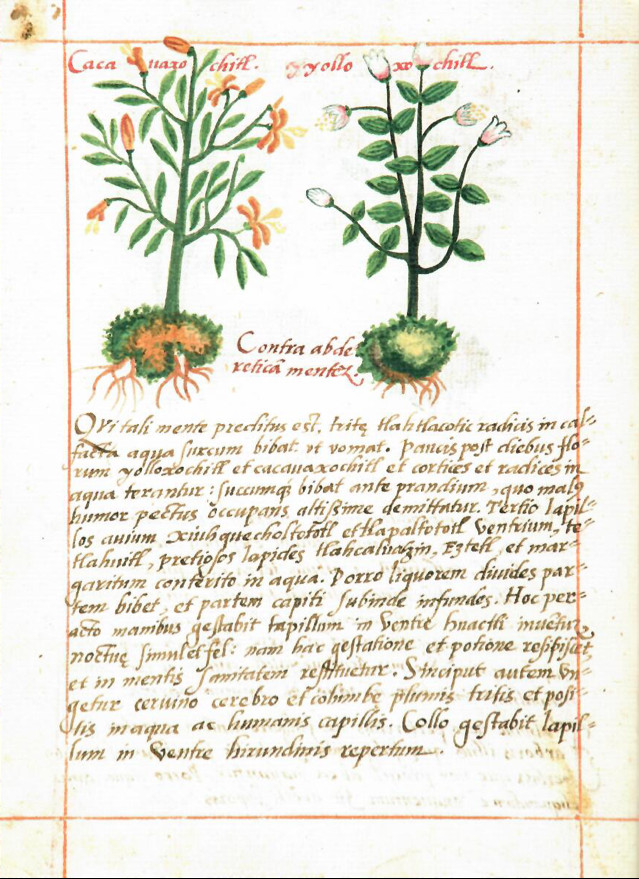 Cacauaxochitl. yyolloxochitl.
Contra abde-
reticā mentē.
QVi tali mente preditus est, tritę tlahtlacotic radicis in cal-
facta aqua succum bibat vt vomat. Paucis post diebus flo-
rum yolloxochitl et cacauaxochitl et cortices et radices in
aqua terantur: succumq; bibat ante prandium, quo malꝰ
humor pectus occupans altissime demittatur. Tertio lapil-
los auium xiuhquecholtototl et tlapaltototl ventrium, te-
tlahuitl, pretiosos lapides tlahcalhuatzin, Eztetl, et mar-
garitum conterito in aqua. Porro liquorem diuides par-
tem bibet, et partem capiti subinde infundes. Hoc per-
acto manibus gestabit lapillum in ventre huactli inuētū
noctuę simul et fel: nam hac gestatione et potione resipiscet
et in mentis sanitatem restituetur. Sinciput autem vn-
getur ceruino cerebro et columbę plumis tritis et posi-
tis in aqua ac humanis capillis. Collo gestabit lapil-
lum in ventre hirundinis repertum.